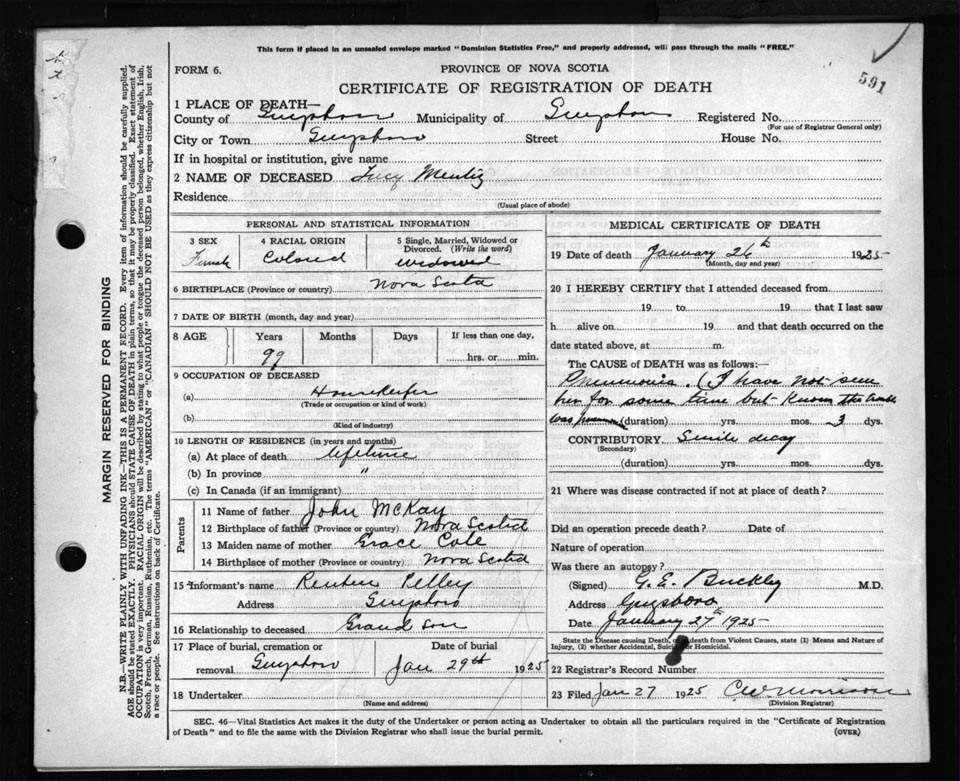 This form if placed in an unsealed envelope marked "Dominion Statistics Free," and properly addressed, will pass through the mails "FREE."
591
FORM 6.
PROVINCE OF NOVA SCOTIA
CERTIFICATE OF REGISTRATION OF DEATH
1 PLACE OF DEATH—
County of Guysboro Municipality of Guysboro Registered No.
(For use of Registrar General only)
City or Town Guysboro Street House No.
If in hospital or institution, give name
2 NAME OF DECEASED Lucy
Residence
(Usual place of abode)
PERSONAL AND STATISTICAL INFORMATION
3 SEX 4 RACIAL ORIGIN 5 Single, Married, Widowed or Divorced. (Write the word)
Female Colored widowed
6 BIRTHPLACE (Province or country) Nova Scotia
7 DATE OF BIRTH (month, day and year)
8 AGE Years Months Days If less than one day,
99 hrs. or min.
9 OCCUPATION OF DECEASED
(a) Housekeeper
(Trade or occupation or kind of work)
(b)
(Kind of industry)
10 LENGTH OF RESIDENCE (in years and months)
(a) At place of death lifetime
(b) In province "
(c) In Canada (if an immigrant)
Parents
11 Name of father John McKay
12 Birthplace of father (Province or country) Nova Scotia
13 Maiden name of mother Grace Cole
14 Birthplace of mother (Province or country) Nova Scotia
15 Informant's name Reuben Kelley
Address Guysboro
16 Relationship to deceased Grand Son
17 Place of burial, cremation or removal Guysboro
Date of burial Jan 29th 1925
18 Undertaker
(Name and address)
MEDICAL CERTIFICATE OF DEATH
19 Date of death January 26th 1925
(Month, day and year)
20 I HEREBY CERTIFY that I attended deceased from
19 to 19 that I last saw
h alive on 19 and that death occurred on the
date stated above, at m.
The CAUSE OF DEATH was as follows:
Pneumonia. (I have not seen
her for some time but know the
was (duration) yrs. mos. 3 dys.
CONTRIBUTORY. Senile decay
(Secondary)
(duration) yrs. mos. dys.
21 Where was disease contracted if not at place of death?
Did an operation precede death? Date of
Nature of operation
Was there an autopsy?
(Signed) G. E. Buckley M.D.
Address Guysboro
Date January 27th 1925
State the Disease causing Death, or death from Violent Causes, state (1) Means and Nature of
Injury, (2) whether Accidental, Suicidal or Homicidal.
22 Registrar's Record Number
23 Filed Jan 27 1925 C W Morrison
(Division Registrar)
SEC. 46—Vital Statistics Act makes it the duty of the Undertaker or person acting as Undertaker to obtain all the particulars required in the "Certificate of Registration
of Death" and to file the same with the Division Registrar who shall issue the burial permit.
(OVER)
MARGIN RESERVED FOR BINDING
N.B.—WRITE PLAINLY WITH UNFADING INK—THIS IS A PERMANENT RECORD. Every item of information should be carefully supplied.
AGE should be stated EXACTLY. PHYSICIANS should STATE CAUSE OF DEATH in plain terms, so that it may be properly classified. Exact statement of
OCCUPATION is very important. RACIAL ORIGIN will be described by stating to what people or tongue the deceased person belonged, whether English, Irish,
Scotch, French, German, Russian, Ruthenian, etc. The terms "AMERICAN" or "CANADIAN" SHOULD NOT BE USED as they express citizenship but not
a race or people. See instructions on back of Certificate.